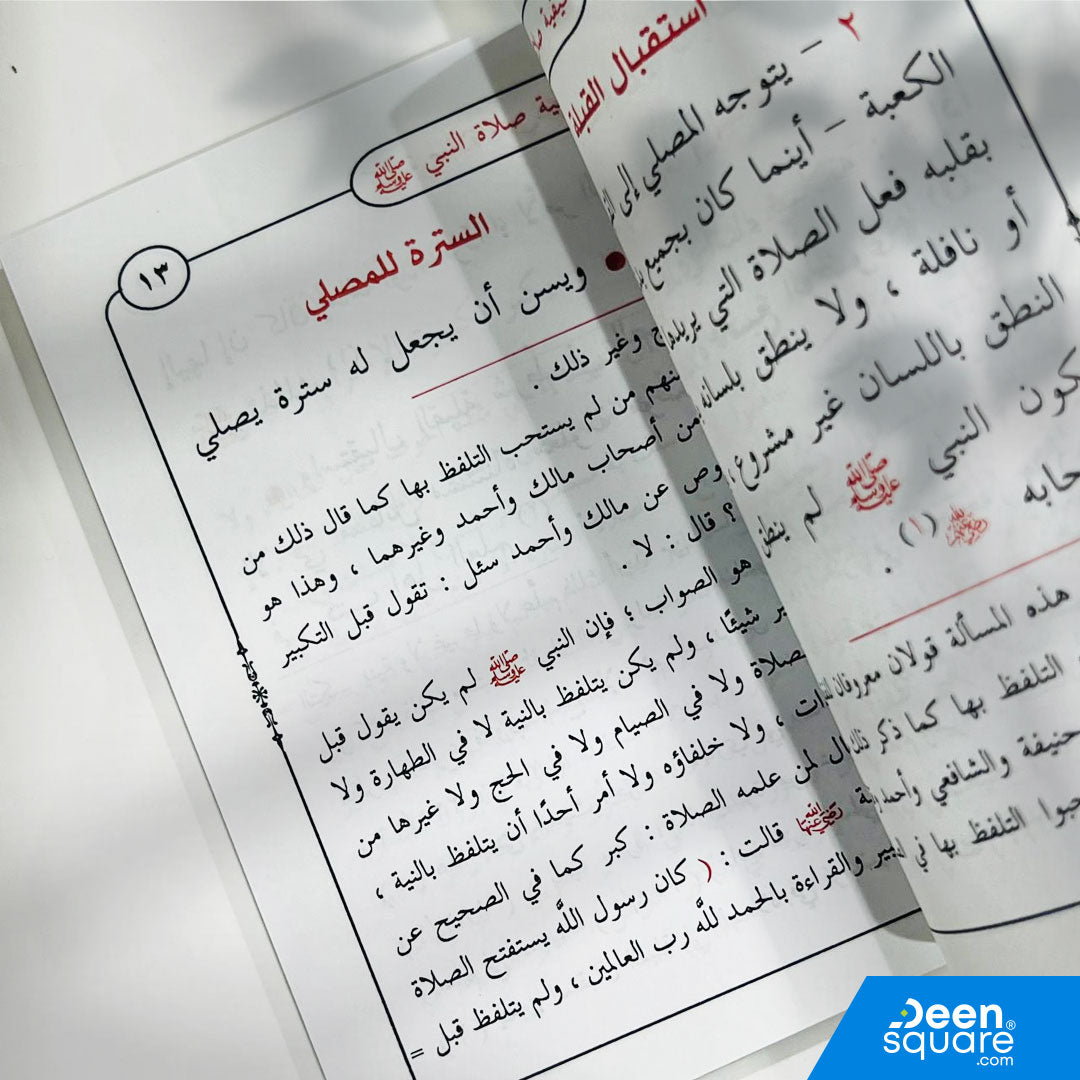 كيفية ص
استقبال القبلة
٢ – يتوجه المصلي إلى
الكعبة – أينما كان بجميع
بقلبه فعل الصلاة التي يريد
أو نافلة ، ولا ينطق بلسانه
النطق باللسان غير مشروع
كون النبي ﷺ لم ينطق
حابه (١) .
هذه المسألة قولان معروفان
التلفظ بها كما ذكر ذلك
حنيفة والشافعي وأحمد
جبوا التلفظ بها في
ية صلاة النبي ﷺ
١٣
السترة للمصلي
• ويسن أن يجعل له سترة يصلي
ج وغير ذلك .
منهم من لم يستحب التلفظ بها كما قال ذلك من
من أصحاب مالك وأحمد وغيرهما ، وهذا هو
وص عن مالك وأحمد سئل : تقول قبل التكبير
؟ قال : لا .
هو الصواب ؛ فإن النبي ﷺ لم يكن يقول قبل
ير شيئًا ، ولم يكن يتلفظ بالنية لا في الطهارة ولا
صلاة ولا في الصيام ولا في الحج ولا غيرها من
ات ، ولا خلفاؤه ولا أمر أحدًا أن يتلفظ بالنية ،
ال لمن علمه الصلاة : كبر كما في الصحيح عن
ة رضي الله عنها قالت : ( كان رسول اللَّه يستفتح الصلاة
بير والقراءة بالحمد للَّه رب العالمين ، ولم يتلفظ قبل =
Deen
square®
.com